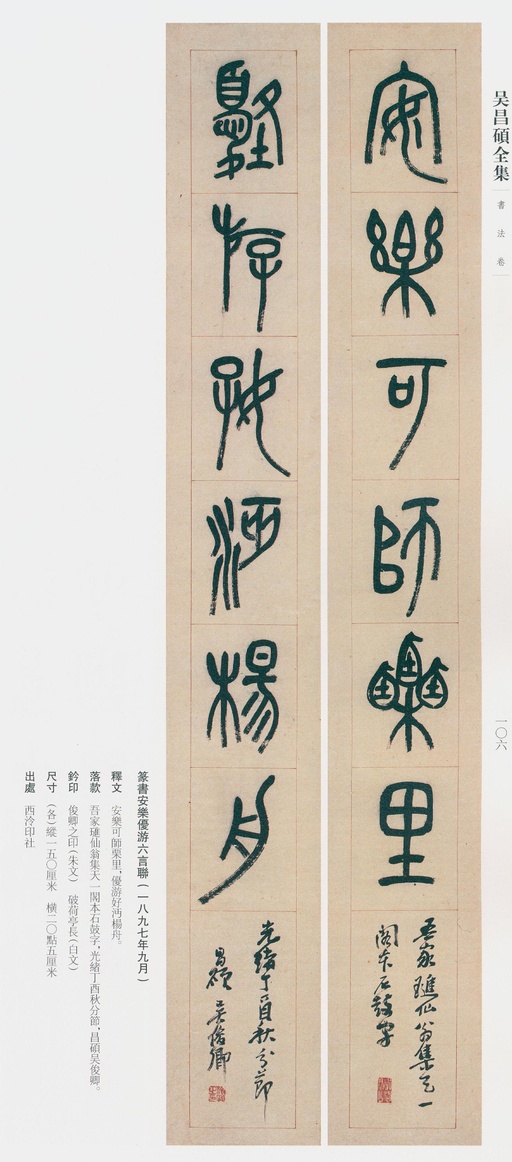 吴昌碩全集
書法卷
一〇六
安樂可師㮚里
優斿好沔楊舟
吾家璡仙翁集天一
閣本石鼓字
光緒丁酉秋分節
昌碩吴俊卿
篆書安樂優游六言聯(一八九七年九月)
釋文 安樂可師栗里,優游好沔楊舟。
落款 吾家璡仙翁集天一閣本石鼓字,光緒丁酉秋分節,昌碩吴俊卿。
鈐印 俊卿之印(朱文) 破荷亭長(白文)
尺寸 (各)縱一五〇厘米 橫二〇點五厘米
出處 西泠印社